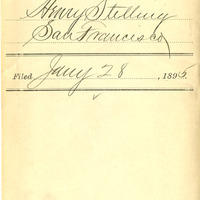 Henry Stelling
San Francisco
Filed Jany 28, 1895.